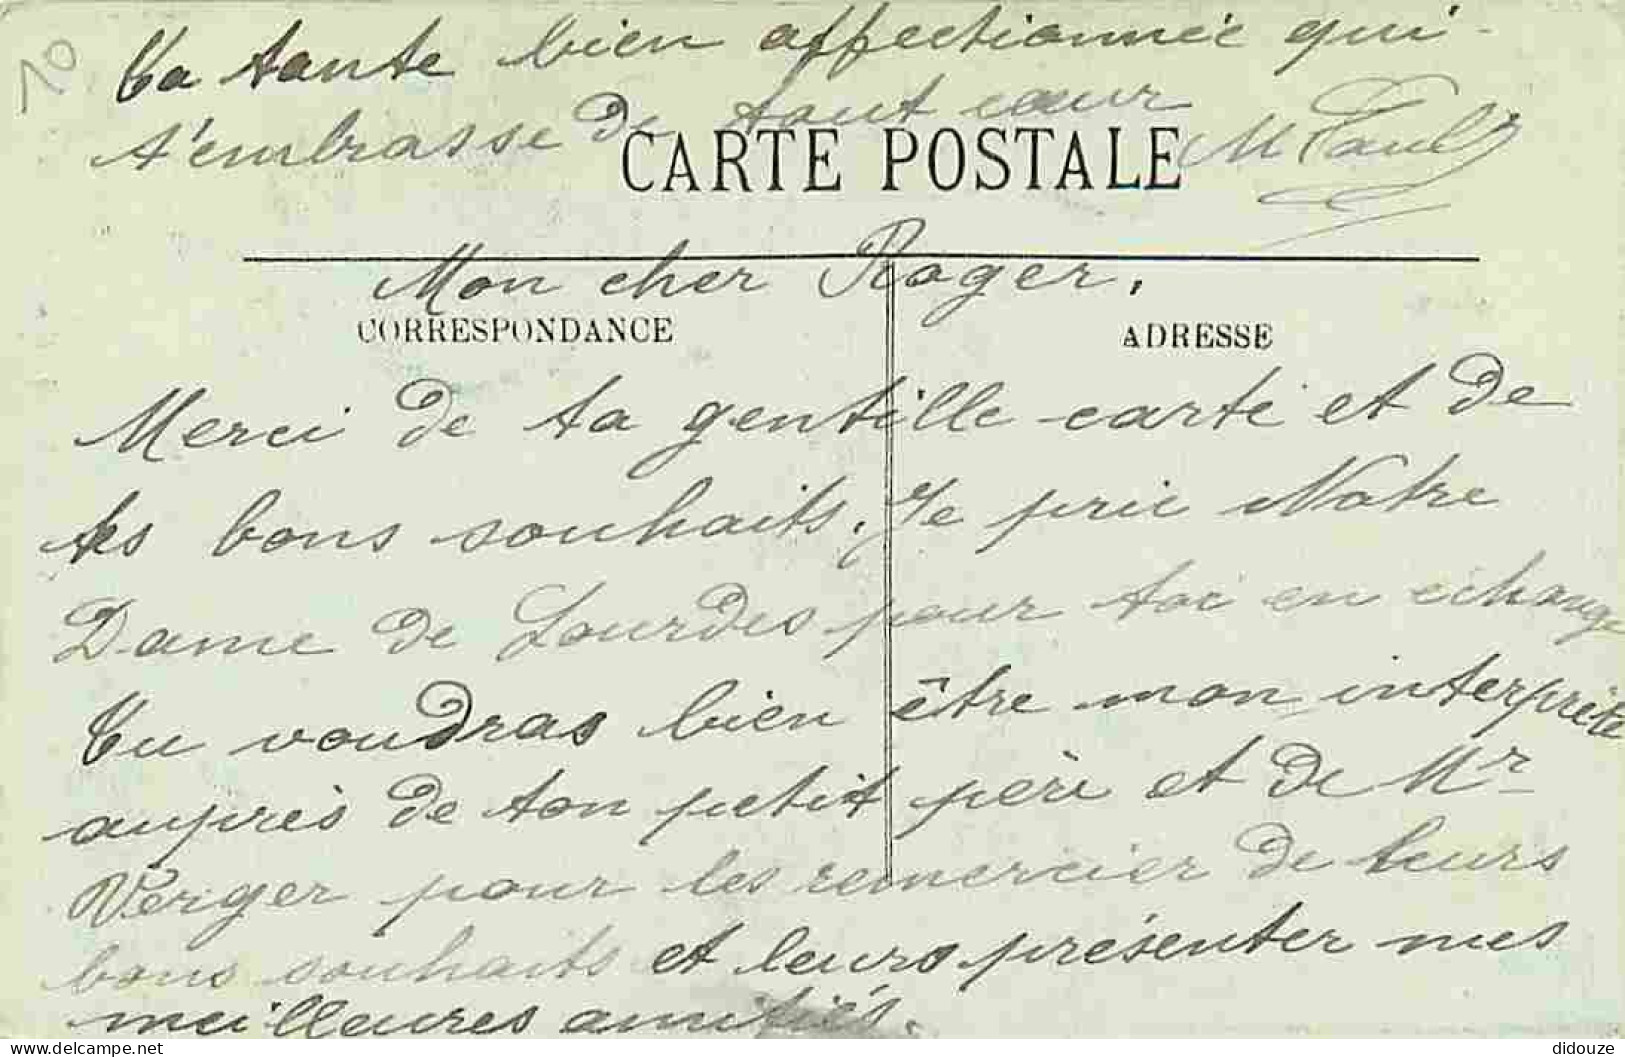 70
Ta tante bien affectionnée qui
t'embrasse de tout cœur
M Paul
CARTE POSTALE
Mon cher Roger,
CORRESPONDANCE
ADRESSE
Merci de ta gentille carte et de
tes bons souhaits. Je prie Notre
Dame de Lourdes pour toi en échange
Tu voudras bien être mon interprète
auprès de ton petit père et de Mr
Verger pour les remercier de leurs
bons souhaits et leurs présenter mes
meilleures amitiés.
www.delcampe.net
didouze